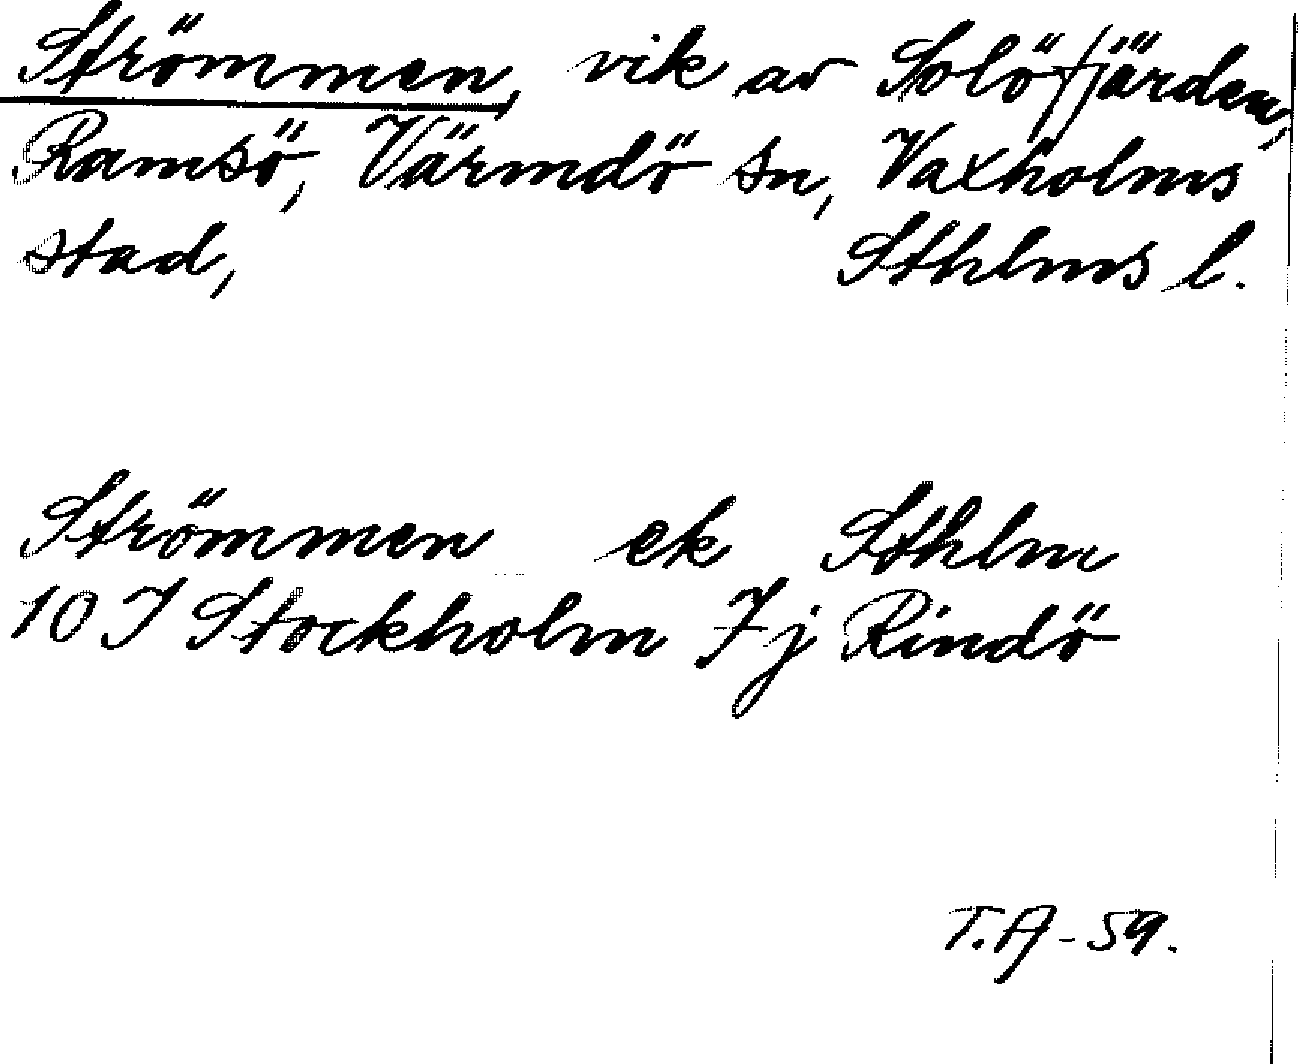 Strömmen, vik av Solöfjärden,
Ramsö, Värmdö sn, Vaxholms
stad, Sthlms l.
Strömmen ek Sthlm
10 I Stockholm 7 j Rindö
T.A-59.